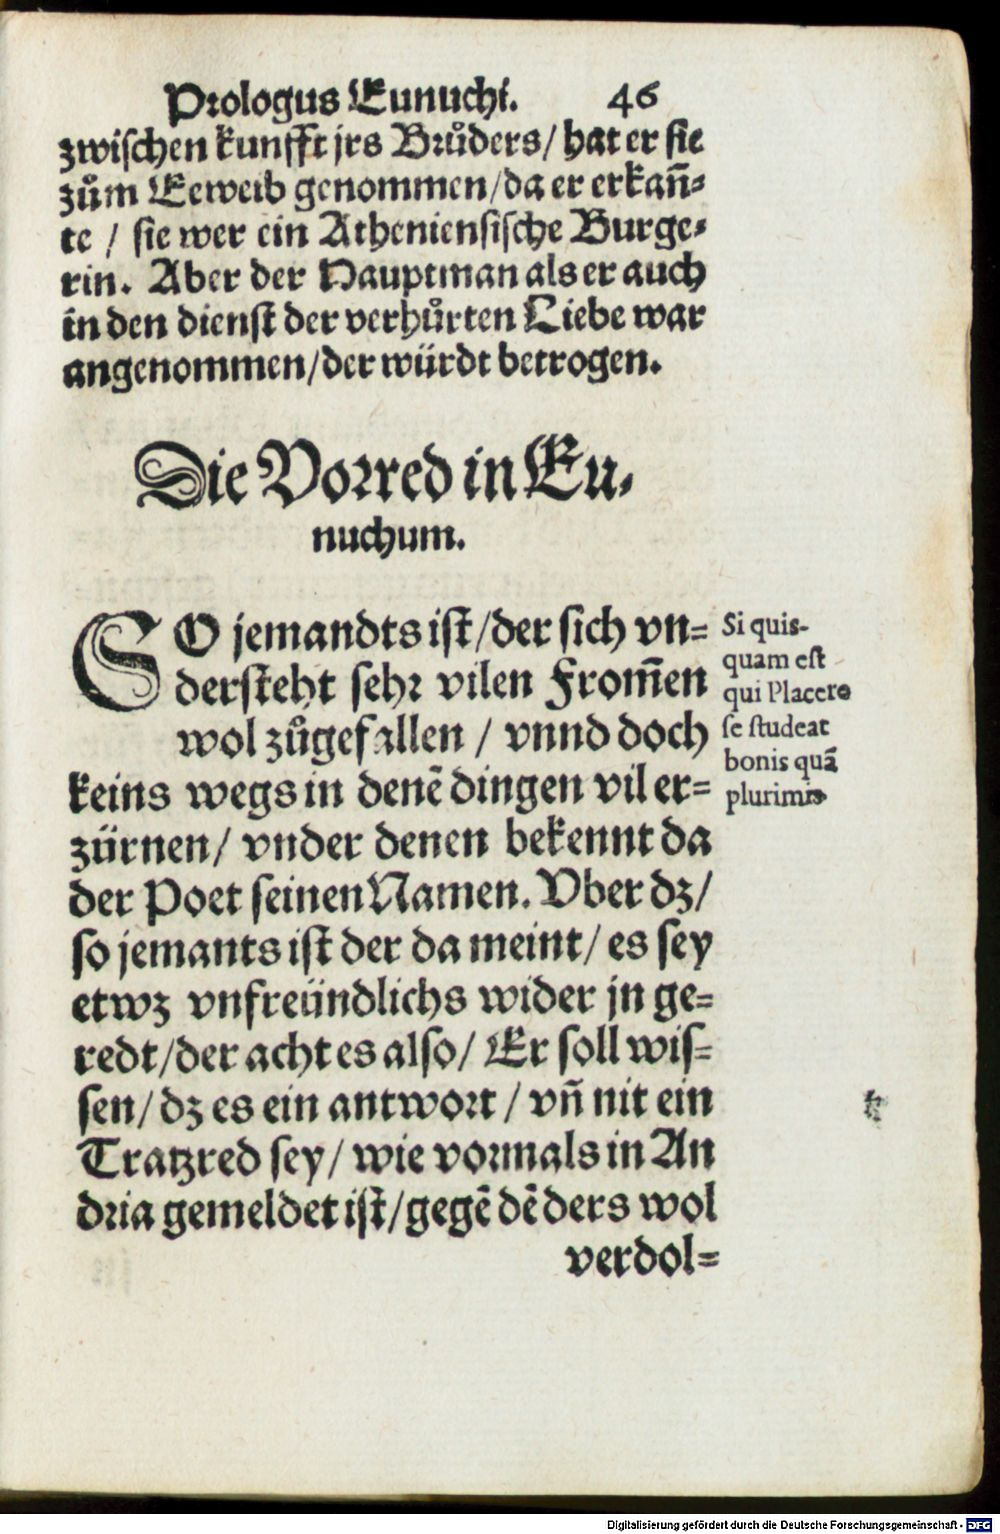 Prologus Eunuchi. 46
zwischen kunfft jrs Brůders/ hat er sie
zům Eeweib genommen/da er erkañ=
te / sie wer ein Atheniensische Burge=
rin. Aber der Hauptman als er auch
in den dienst der verhůrten Liebe war
angenommen/der würdt betrogen.
Die Vorred in Eu=
nuchum.
SO jemandts ist/der sich vn=
dersteht sehr vilen From̃en
wol zůgefallen / vnnd doch
keins wegs in denẽ dingen vil er=
zürnen/ vnder denen bekennt da
der Poet seinen Namen. Vber dz/
so jemants ist der da meint/ es sey
etwz vnfreündlichs wider jn ge=
redt/der acht es also/ Er soll wis=
sen/ dz es ein antwort / vñ nit ein
Tratzred sey/ wie vormals in An
dria gemeldet ist/gegẽ dẽ ders wol
verdol=
Si quis-
quam est
qui Placere
se studeat
bonis quã
plurimis
Digitalisierung gefördert durch die Deutsche Forschungsgemeinschaft - DFG